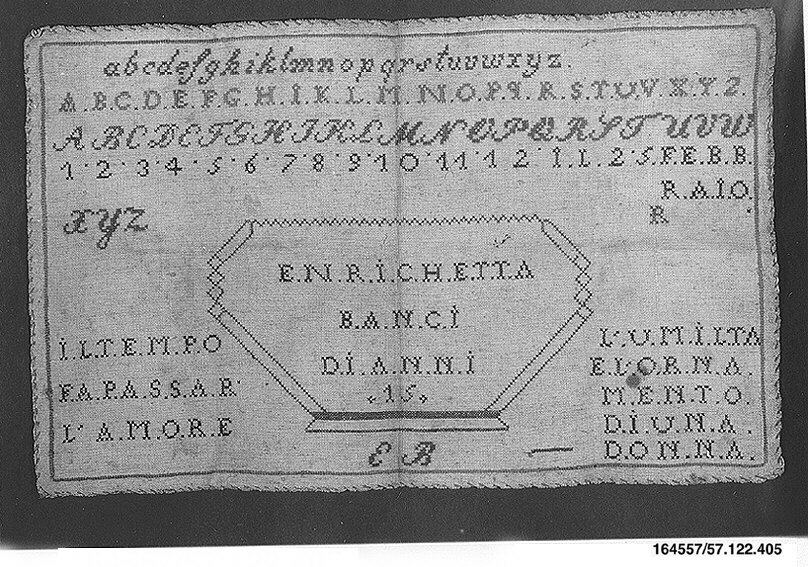 abcdefghiklmnopqrstuvwxyz.
A.B.C.D.E.F.G.H.I.K.L.M.N.O.P.Q.R.S.T.U.V.X.Y.Z.
ABCDEFGHIKLMNOPQRSTUVW
1.2.3.4.5.6.7.8.9.10.11.12.IL.25.F.E.B.B.
R.A.I.O.
R
XYZ
E.N.R.I.C.H.E.T.T.A
B.A.N.C.I
D.I.A.N.N.I
.15.
I.L.T.E.M.P.O
F.A.P.A.S.S.A.R
L'A.M.O.R.E
L'.U.M.I.L.T.A
E.L'O.R.N.A.
M.E.N.T.O.
D.I.U.N.A.
D.O.N.N.A.
E B
164557/57.122.405